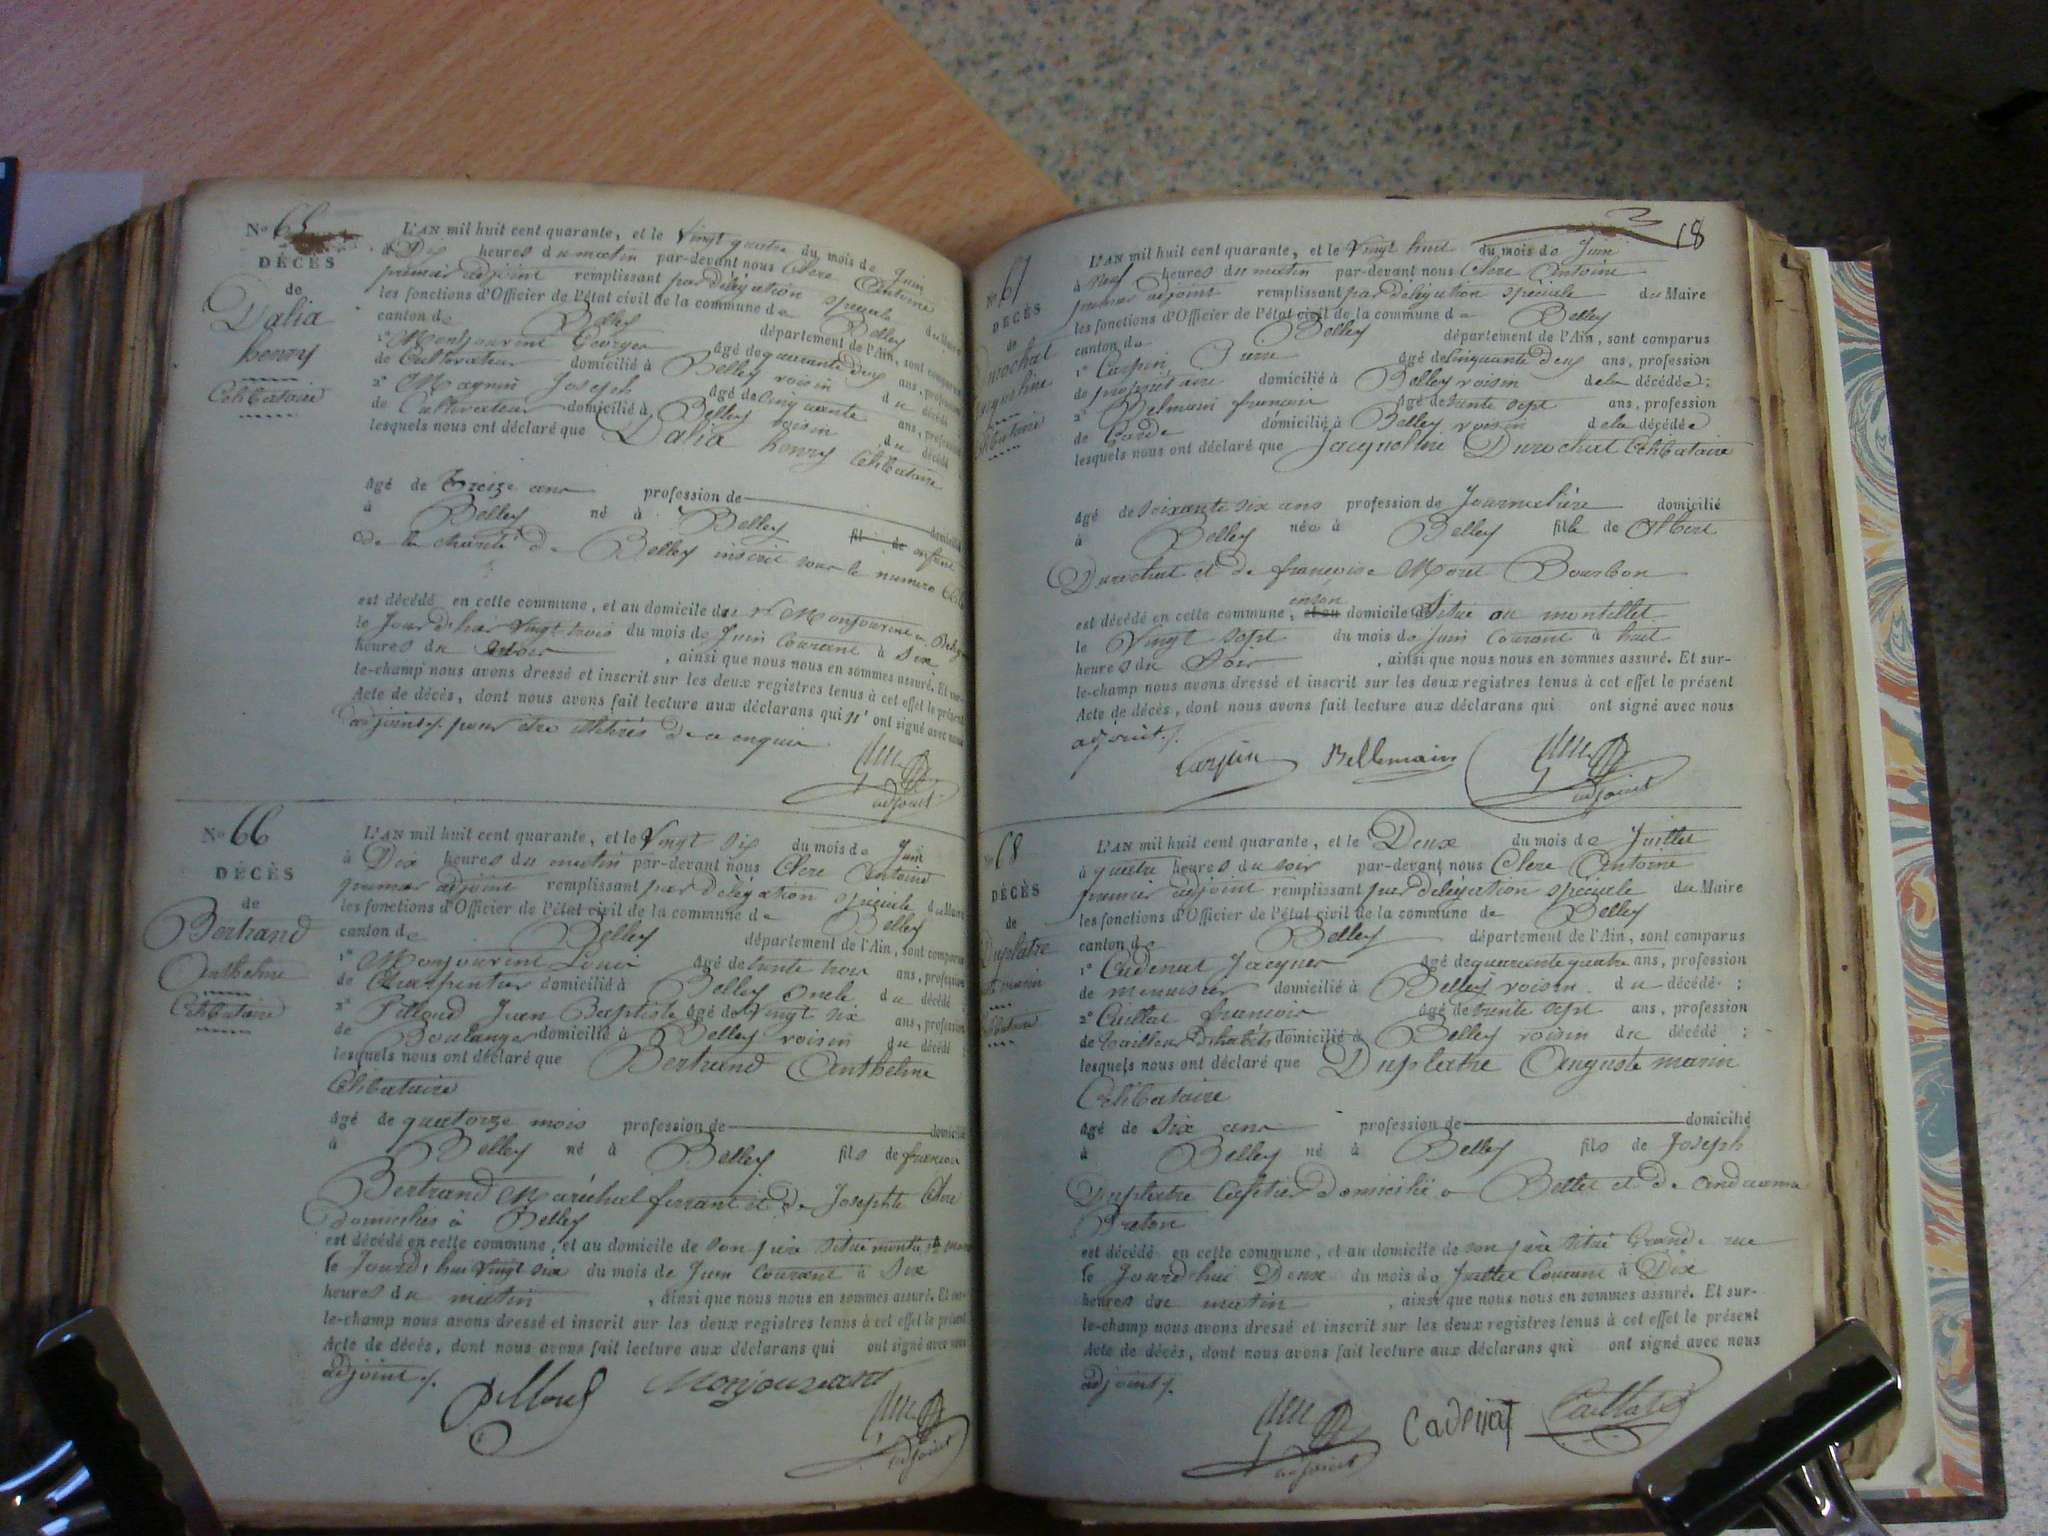 No 65
DÉCÈS
de
Dalia
henry
Célibataire
L'AN mil huit cent quarante, et le Vingt quatre du mois de Juin
à Dix heures du matin par-devant nous Clerc Antoine
premier adjoint remplissant par délégation speciale du Maire
les fonctions d'Officier de l'état civil de la commune de Belley
canton de Belley département de l'Ain, sont comparus
1° Montjouvent Georges âgé de quarante deux ans, profession
de Cultivateur domicilié à Belley voisin du décédé
2° Magnin Joseph âgé de Cinquante ans, profession
de Cultivateur domicilié à Belley voisin du décédé
lesquels nous ont déclaré que Dalia henry Célibataire
âgé de Treize ans profession de domicilié
à Belley né à Belley fil de enfant
de la charité de Belley inscrit sous le numero
est décédé en cette commune, et au domicile du Monjouvent
le Jourd'hui vingt trois du mois de Juin Courant à Six
heures du soir, ainsi que nous nous en sommes assuré. Et sur-
le-champ nous avons dressé et inscrit sur les deux registres tenus à cet effet le présent
Acte de décès, dont nous avons fait lecture aux déclarans qui n'ont signé avec nous
adjoint ./. pour être illitérés de ce enquis
adjoint
No 66
DÉCÈS
de
Bertrand
Anthelme
Célibataire
L'AN mil huit cent quarante, et le Vingt Six du mois de Juin
à Dix heures du matin par-devant nous Clerc Antoine
premier adjoint remplissant par délégation spéciale du Maire
les fonctions d'Officier de l'état civil de la commune de Belley
canton de Belley département de l'Ain, sont comparus
1° Monjouvent Louis âgé de trente trois ans, profession
de Charpentier domicilié à Belley oncle du décédé
2° Pilloud Jean Baptiste âgé de Vingt six ans, profession
de Boulanger domicilié à Belley voisin du décédé
lesquels nous ont déclaré que Bertrand Anthelme
Célibataire
âgé de quatorze mois profession de domicilié
à Belley né à Belley fils de francois
Bertrand Maréchal ferrant et de Josephte Clerc
Domiciliés à Belley
est décédé en cette commune, et au domicile de son père situé
le Jourd'hui vingt six du mois de Juin courant à Six
heures du matin, ainsi que nous nous en sommes assuré. Et sur-
le-champ nous avons dressé et inscrit sur les deux registres tenus à cet effet le présent
Acte de décès, dont nous avons fait lecture aux déclarans qui ont signé avec nous
adjoint ./.
Pilloud Monjouvent
adjoint
18
No 67
DÉCÈS
de
Durochat
Jacqueline
Célibataire
L'AN mil huit cent quarante, et le Vingt huit du mois de Juin
à Neuf heures du matin par-devant nous Clerc Antoine
premier adjoint remplissant par délégation spéciale du Maire
les fonctions d'Officier de l'état civil de la commune de Belley
canton de Belley département de l'Ain, sont comparus
1° Carpin Pierre âgé de Cinquante deux ans, profession
de propriétaire domicilié à Belley voisin de la décédée;
2° Belmain francois âgé de trente sept ans, profession
de Garde domicilié à Belley voisin de la décédée
lesquels nous ont déclaré que Jacqueline Durochat Célibataire
âgé de soixante six ans profession de Journalière domicilié
à Belley née à Belley fille de Albert
Durochat et de françoise Moret Bourbon
est décédé en cette commune, et au en son domicile Situé au montillet
le Vingt sept du mois de Juin Courant à huit
heures du Soir, ainsi que nous nous en sommes assuré. Et sur-
le-champ nous avons dressé et inscrit sur les deux registres tenus à cet effet le présent
Acte de décès, dont nous avons fait lecture aux déclarans qui ont signé avec nous
adjoint ./.
Carpin Bellemain
adjoint
No 68
DÉCÈS
de
Duplatre
marin
Célibataire
L'AN mil huit cent quarante, et le Deux du mois de Juillet
à quatre heures du soir par-devant nous Clerc Antoine
premier adjoint remplissant par délégation spéciale du Maire
les fonctions d'Officier de l'état civil de la commune de Belley
canton de Belley département de l'Ain, sont comparus
1° Cadenat Jacques âgé de quarante quatre ans, profession
de menuisier domicilié à Belley voisin du décédé;
2° Caillat francois âgé de trente sept ans, profession
de tailleur D'habits domicilié à Belley voisin du décédé;
lesquels nous ont déclaré que Duplatre Auguste marin
Célibataire
âgé de Six ans profession de domicilié
à Belley né à Belley fils de Joseph
Duplatre Domicilié à Belley et de
Breton
est décédé en cette commune, et au domicile de son père situé Grande rue
le Jourd'hui Deux du mois de Juillet Courant à Dix
heures du matin, ainsi que nous nous en sommes assuré. Et sur-
le-champ nous avons dressé et inscrit sur les deux registres tenus à cet effet le présent
Acte de décès, dont nous avons fait lecture aux déclarans qui ont signé avec nous
adjoint ./.
adjoint Cadenat Caillat